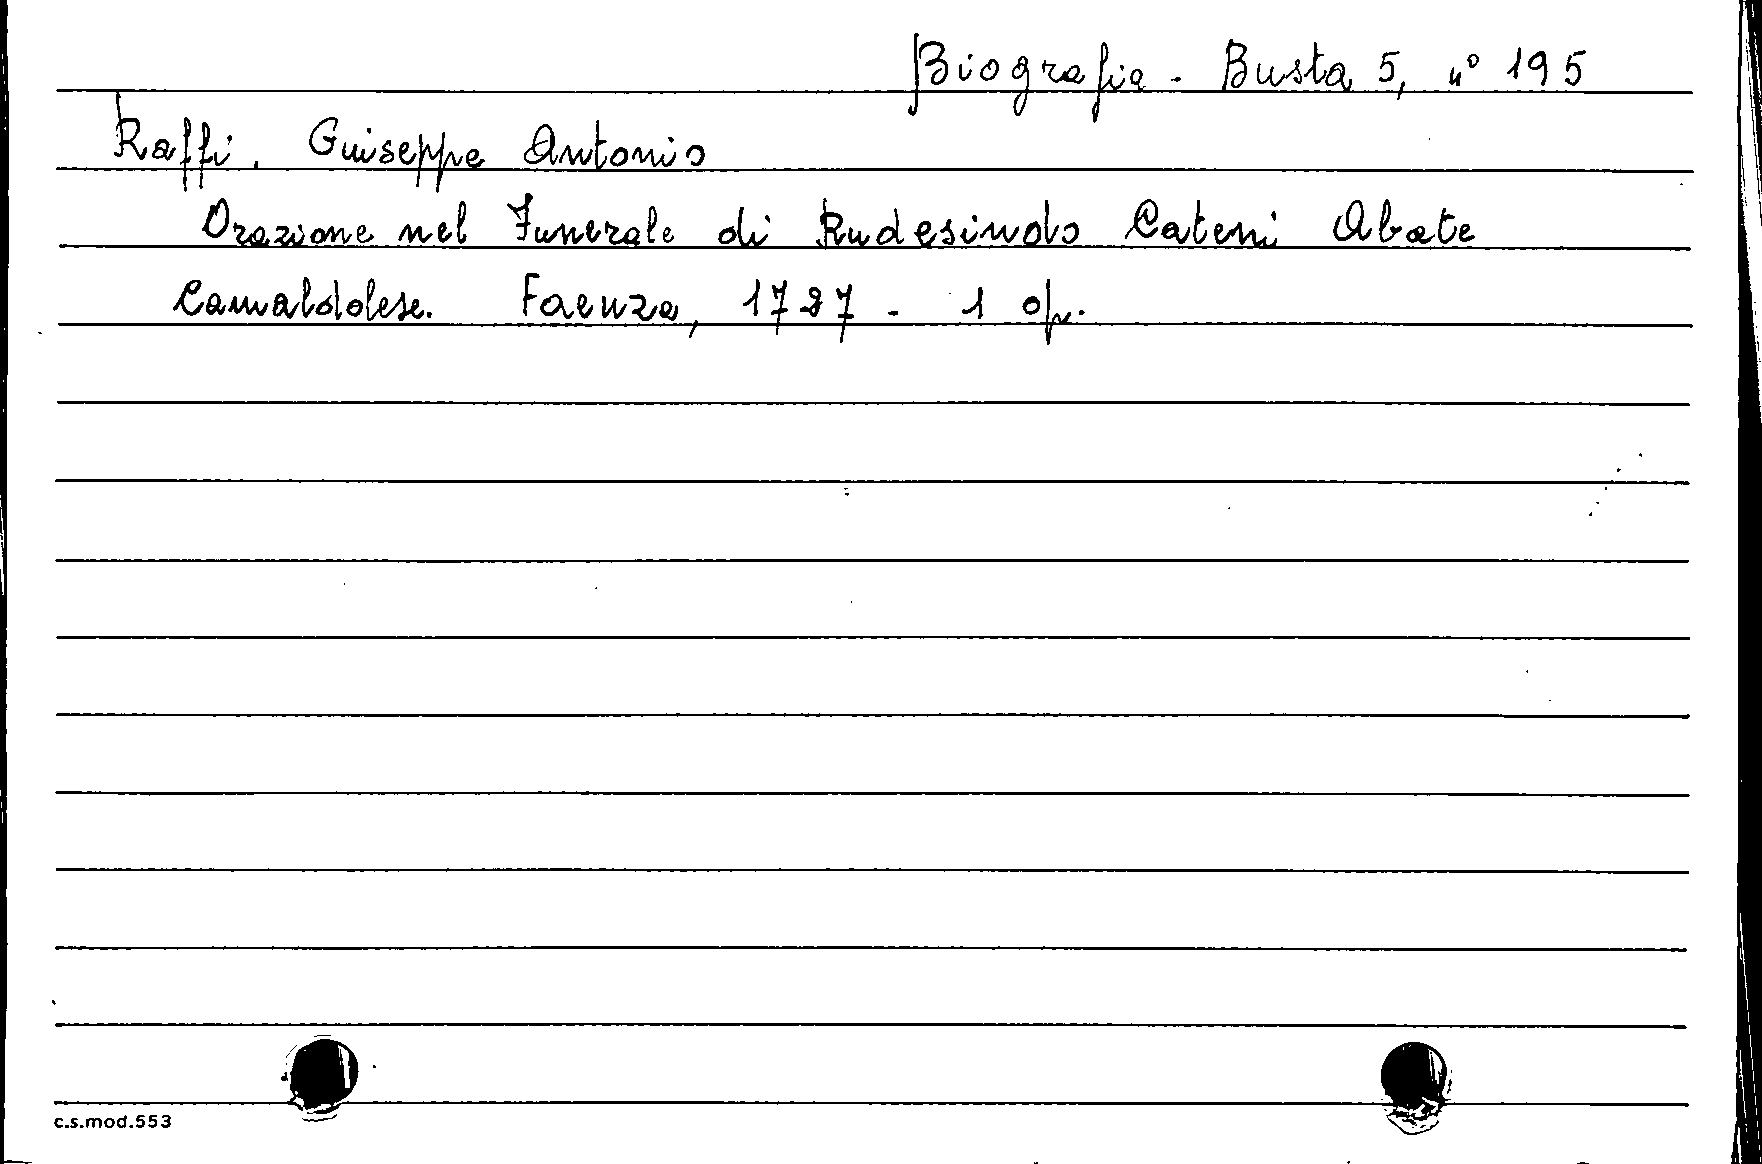 Biografia - Busta 5, n° 195
Raffi, Giuseppe Antonio
Orazione nel Funerale di Rudesindo Cateni Abate
Camaldolese. Faenza, 1727 - 1 op.
c.s.mod.553